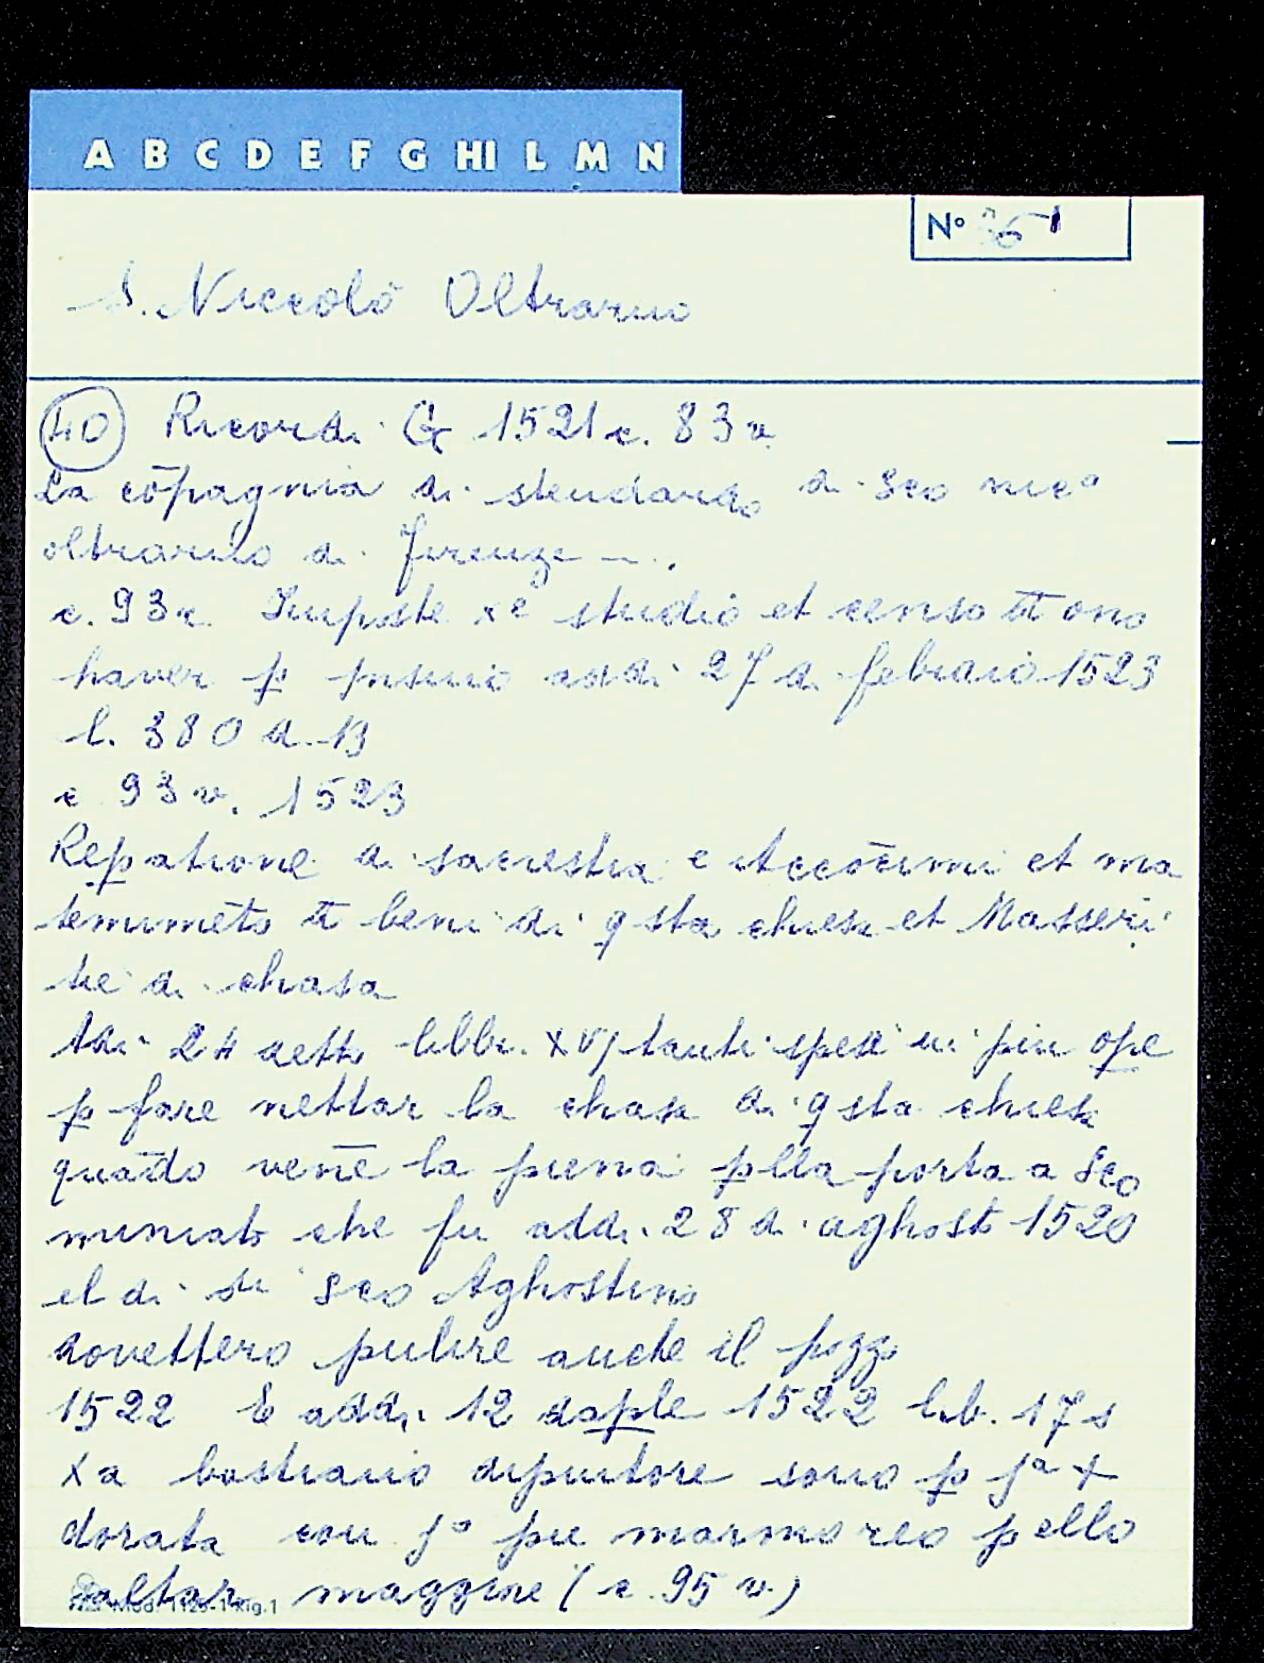 A B C D E F G HI L M N
N°
S. Niccolò Oltrarno
40 Ricordi G 1521 c. 83 v.
La cōpagnia di stendardo di Sco nicº
oltrarno di firenze - .
c. 93 r. Imposte xe studio et censo tt ono
haver p insino addi 27 di febraio 1523
l. 380 d. 13
c 93 v. 1523
Repatione di sacrestia e Accōcimi et ma
tenimēto tt beni di qsta chiesa et Masseri
tie di chasa
Adi 24 detto libbr. xvj tanti spesi in piu ope
p fare nettar la chasa di qsta chiesa
quādo venē la piena plla porta a Sco
miniato che fu addi 28 di aghosto 1520
el di di Sco Aghostino
dovettero pulire anche il pozzo
1522 E addi 12 daple 1522 lib. 17 s
x a bastiano dipintore sono p jª +
dorata con jº pie marmoreo p ello
altar maggiore (c. 95 v.)
Mod. 1125-1 Rig.1